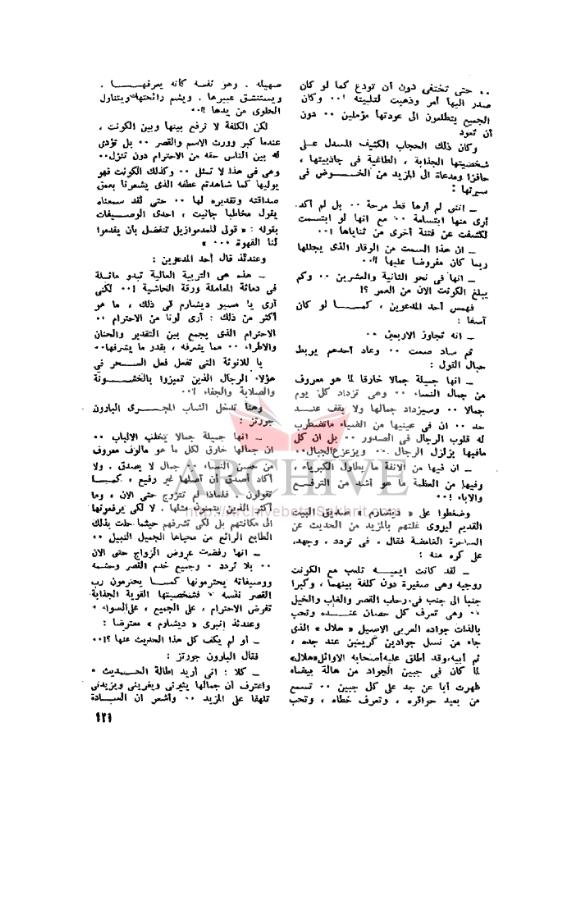 ٠٠ حتى تختفي دون أن تودع كما لو كان
صدر اليها أمر وذهبت لتلبيته !٠٠ وكان
الجميع يتطلعون الى عودتها مؤملين ٠٠ دون
أن تعود
وكان ذلك الحجاب الكثيف المسدل على
شخصيتها الجذابة ، الطاغية في جاذبيتها ،
حافزا ومدعاة الى المزيد من الخوض في
سيرتها :
ـ انني لم أرها قط مرحة ٠٠ بل لم أكد
أرى منها ابتسامة ٠٠ مع انها لو ابتسمت
لكشفت عن فتنة أخرى من ثناياها !٠٠
ـ ان هذا السمت من الوقار الذى يجللها
ربما كان مفروضا عليها !!٠٠
ـ انها في نحو الثانية والعشرين ٠٠ وكم
يبلغ الكونت الآن من العمر ؟!
فهمس أحد المدعوين ، كمـا لو كان
آسفا :
ـ انه تجاوز الاربعين ٠٠
ثم ساد صمت ٠٠ وعاد أحدهم يربط
حبال القول :
ـ انها جميلة جمالا خارقا لما هو معروف
من جمال النساء ٠٠ وهى تزداد كل يوم
جمالا ٠٠ وسيزداد جمالها ولا يقف عنـد
حد ٠٠ ان في عينيها من الضياء ماتضطرب
له قلوب الرجال في الصدور ٠٠ بل ان كل
مافيها يزلزل الرجال ٠٠ ويزعزع الجبال٠٠
ـ ان فيها من الانفة ما يطاول الكبرياء ،
وفيها من العظمة ما هو أشد من الترفـع
والاباء !٠٠
وضغطوا على « ديشارم » صديق البيت
القديم ليروى غلتهم بالمزيد من الحديث عن
الساحرة الغامضة فقال ، في تردد ، وجهد،
على كره منه :
ـ لقد كانت ايميـه تلعب مع الكونت
روجيه وهى صغيرة دون كلفة بينهما ، وكبرا
جنبا الى جنب في رحاب القصر والغاب والخيل
٠٠ وهى تعرف كل حصان عنـده وتحب
بالذات جواده العربى الاصيل « هلال » الذى
جاء من نسل جوادين كريمين عند جده ،
ثم أبيه،وقد أطلق عليه أصحابه الاوائل«هلال»
لما كان في جبين الجواد من هالة بيضاء
ظهرت أبا عن جد على كل جبين ٠٠ تسمع
من بعيد حوافره ، وتعرف خطاه ، وتحب
صهيله ، وهو نفسه كأنه يعرفهـا ،
ويستنشق عبيرها ، ويشم رائحتها،ويتناول
الحلوى من يدها !!٠٠
لكن الكلفة لا ترفع بينها وبين الكونت ،
عندما كبر وورث الاسم والقصر ٠٠ بل تؤدى
له بين الناس حقه من الاحترام دون تنزل٠٠
وهى في هذا لا تمثل ٠٠ وكذلك الكونت فهو
يوليها كما شاهدتم عطفه الذى يشعرنا بعمق
صداقته وتقديره لها ٠٠ حتى لقد سمعناه
يقول مخاطبا جانيت ، احدى الوصـيفات
بقوله : « قولى للمدموازيل تتفضل بأن يقدموا
لنا القهوة ٠٠٠ »
وعندئذ قال أحد المدعوين :
ـ هذه هى التربية العالية تبدو ماثـلة
في دماثة المعاملة ورقة الحاشية !٠٠ لكنى
أرى يا مسيو ديشارم في ذلك ، ما هو
أكثر من ذلك : أرى لونا من الاحترام ٠٠
الاحترام الذى يجمع بين التقدير والحنان
والاطراء ٠٠ مما يشرفه ، بقدر ما يشرفها٠٠
يا للانوثة التى تفعل فعل السـحر في
هؤلاء الرجال الذين تميزوا بالخشـونة
والصلابة والجفاء !٠٠
وهنا تدخل الشاب المجـرى البارون
جورتز :
ـ انها جميلة جمالا يخلب الالباب ٠٠
ان جمالها خارق لكل ما هو مالوف معروف
من حسن النساء ٠٠ جمال لا يصدق ، ولا
أكاد أصدق أن أصلها غير رفيع ، كمـا
تقولون ، فلماذا لم تتزوج حتى الآن ، وما
أكثر الذين يتمنون مثلها ، لا لكى يرفعوها
الى مكانتهم بل لكى تشرفهم حيثما حلت بذلك
الطابع الرائع من محياها الجميل النبيل ٠٠
ـ انها رفضت عروض الزواج حتى الآن
٠٠ بلا تردد ٠ وجميع خدم القصر وحشمه
ووصيفاته يحترمونها كمـا يحترمون رب
القصر نفسه ٠ فشخصيتها القوية الجذابة
تفرض الاحترام ، على الجميع ، على السواء ٠
وعندئذ انبرى « ديشارم » معترضا :
ـ أو لم يكف كل هذا الحديث عنها ؟!٠٠
فقال البارون جورتز :
ـ كلا : انى أريد اطالة الحـديث ٠
وأعترف أن جمالها يثيرنى ويغرينى ويزيدنى
تلهفا على المزيد ٠٠ وأشعر أن السـادة
١٢١
ARCHIVE